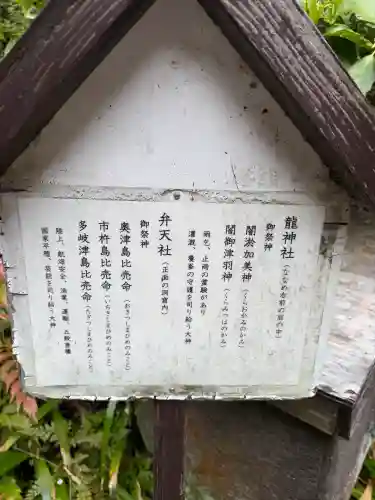 龍神社（ななめ右前の扉の中）
御祭神
闇淤加美神（くらおかみのかみ）
闇御津羽神（くらみつはのかみ）
祈雨、止雨の霊験があり
灌漑、養蚕の守護を司り給う大神
弁天社（正面の洞窟内）
御祭神
奥津島比売命（おきつしまひめのみこと）
市杵島比売命（いちきしまひめのみこと）
多岐津島比売命（たぎつしまひめのみこと）
陸上、航海安全、漁業、運輸、五穀豊穣
国家平穏、芸能を司り給う大神